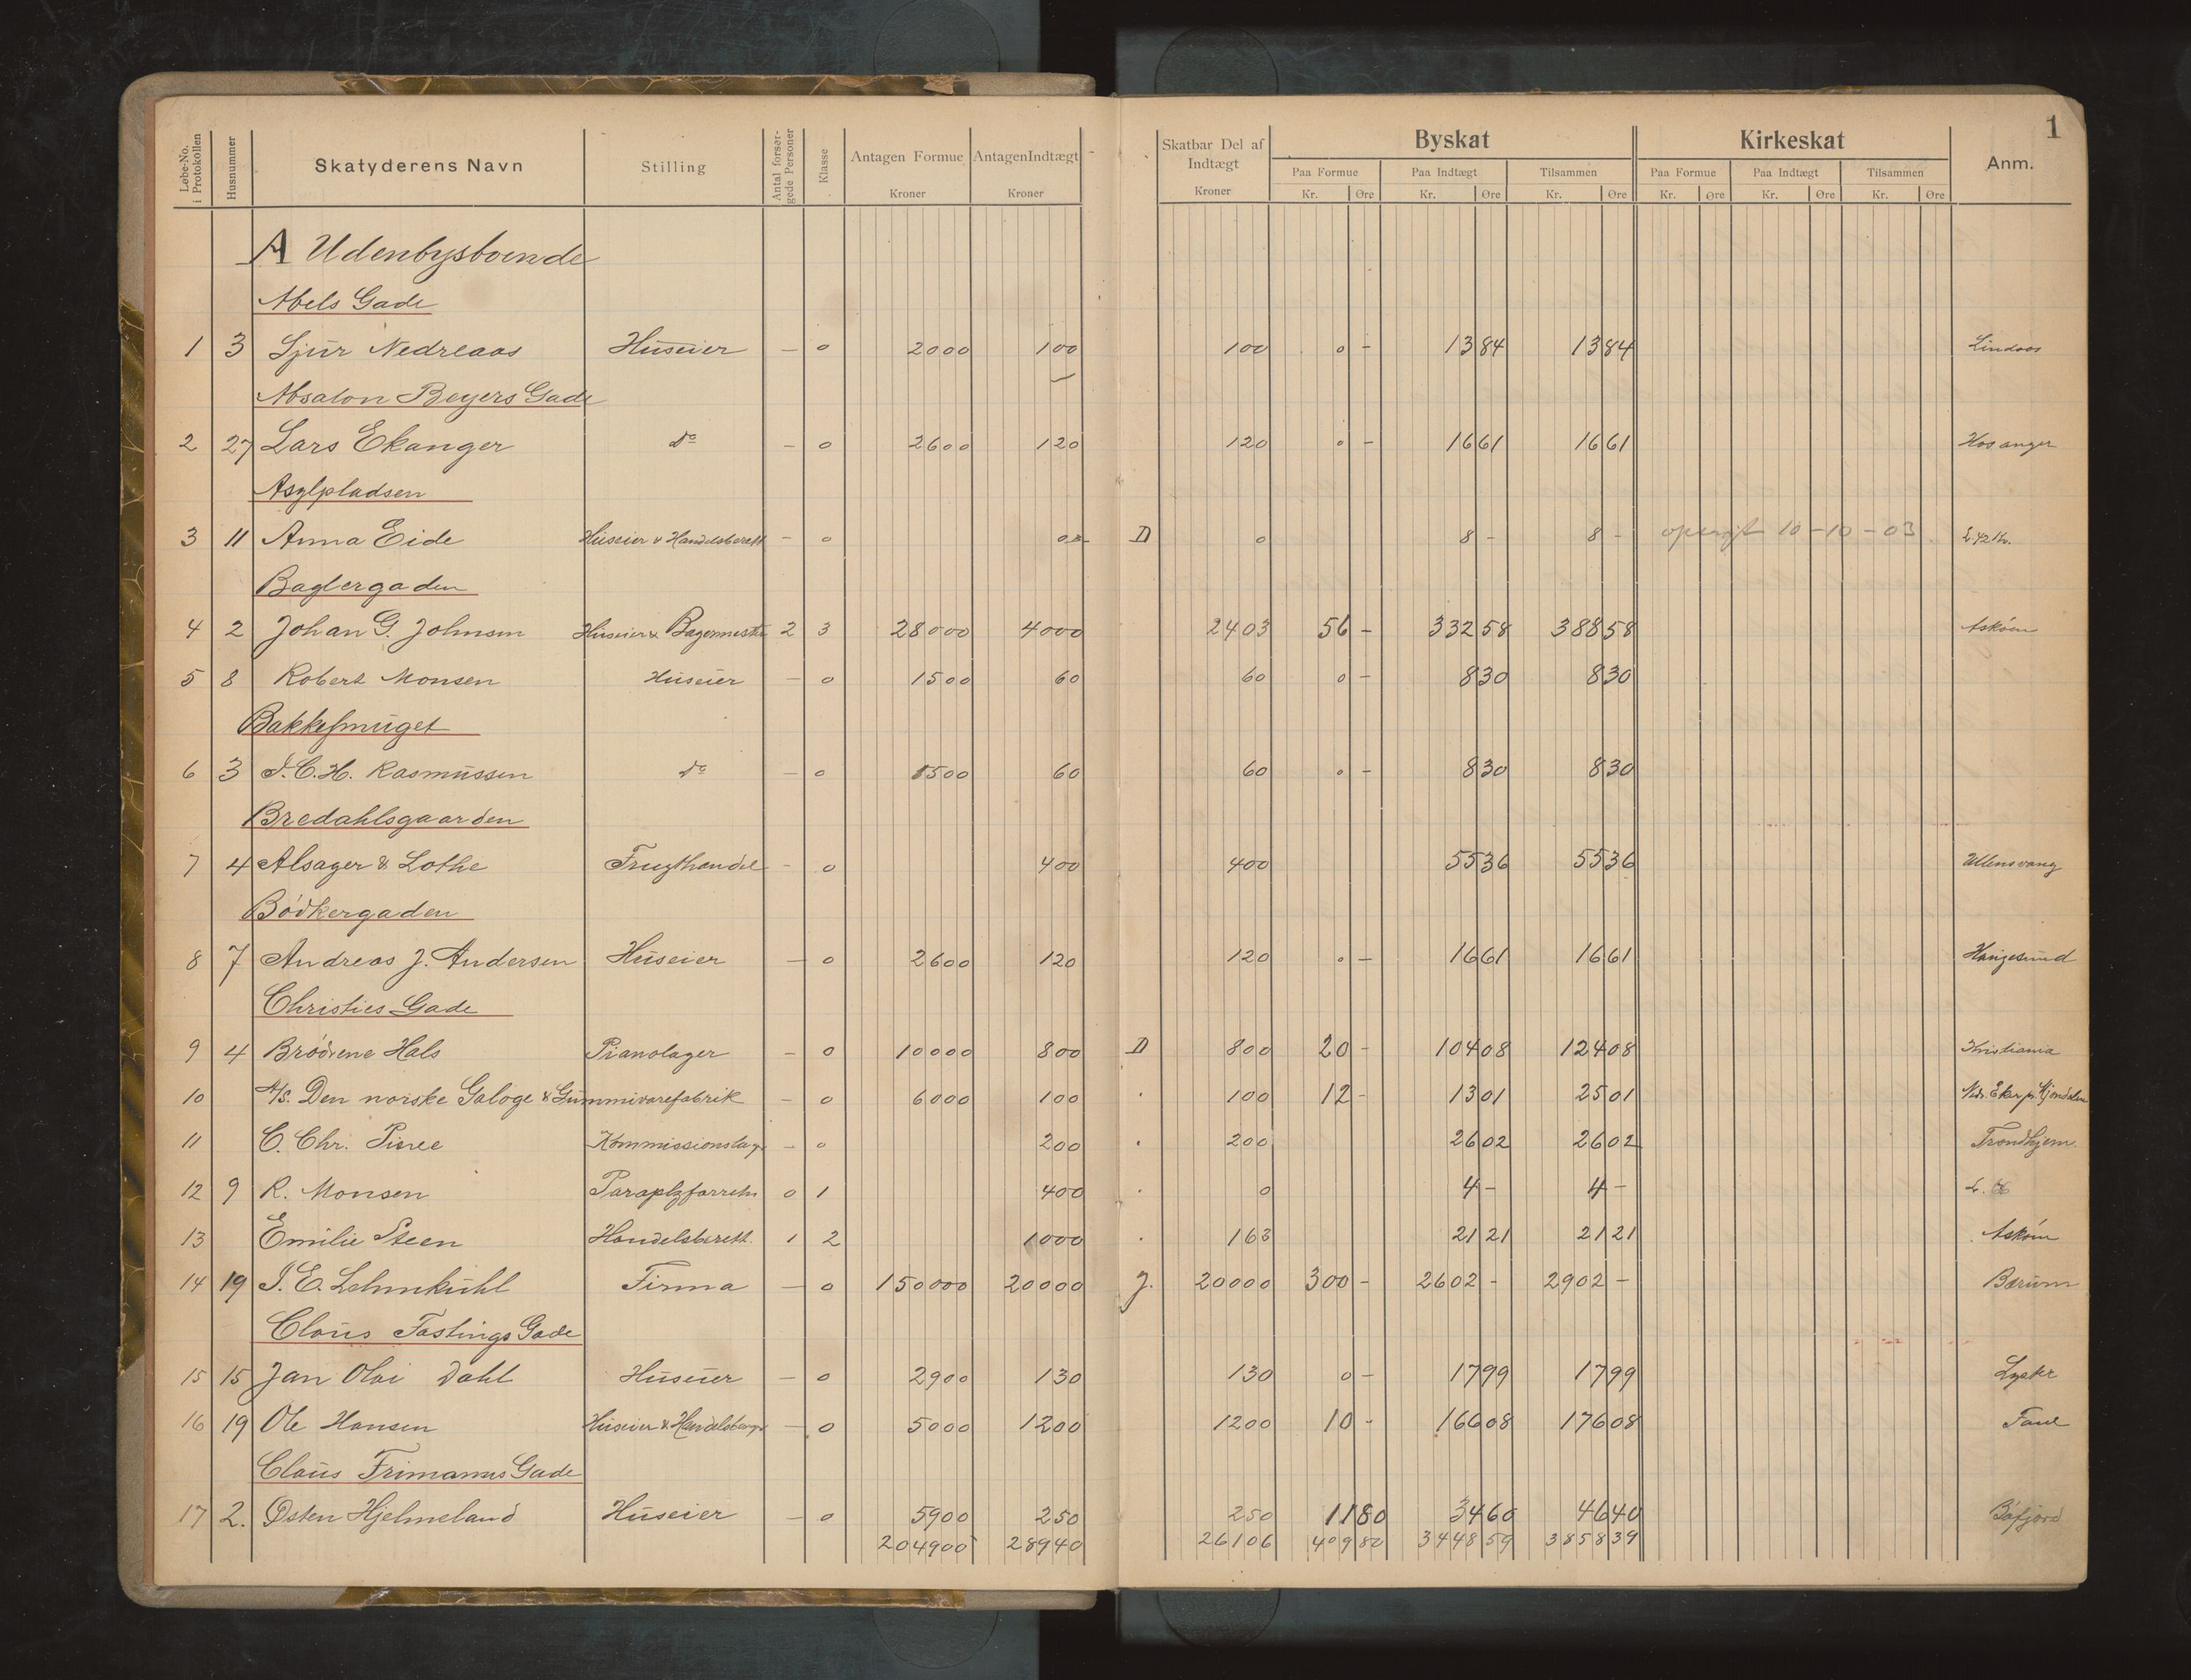 1
Løbe-No. i Protokollen Husnummer Skatyderens Navn Stilling Antal forsørgede Personer Klasse Antagen Formue Kroner Antagen Indtægt Kroner Skatbar Del af Indtægt Kroner Byskat Paa Formue Kr. Øre Paa Indtægt Kr. Øre Tilsammen Kr. Øre Kirkeskat Paa Formue Kr. Øre Paa Indtægt Kr. Øre Tilsammen Kr. Øre Anm.
A Udenbysboende
Abels Gade
1 3 Sjur Nedreaas Huseier — 0 2000 100 100 0 - 13 84 13 84 Lindaas
Absalon Beyers Gade
2 27 Lars Ekanger do — 0 2600 120 120 0 - 16 61 16 61 Hosanger
Asylpladsen
3 11 Anna Eide Huseier & Handelsberett - 0 D 0 8 - 8 - 10-10-03
Baglergaden
4 2 Johan G. Johnsen Huseier & Bagermester 2 3 28000 4000 2403 56 - 332 58 388 58 Askøen
5 8 Robert Monsen Huseier — 0 1500 60 60 0 - 8 30 8 30
Bakkesmuget
6 3 J. C. H. Rasmussen do — 0 1500 60 60 0 - 8 30 8 30
Bredahlsgaarden
7 4 Alsager & Lothe Frugthandel - 0 400 400 55 36 55 36 Ullensvang
Bødkergaden
8 7 Andreas J. Andersen Huseier — 0 2600 120 120 0 - 16 61 16 61 Haugesund
Christies Gade
9 4 Brødrene Hals Pianolager - 0 10000 800 D 800 20 - 104 08 124 08 Kristiania
10 A/S. Den norske Galoge & Gummivarefabrik - 0 6000 100 . 100 12 - 13 01 25 01 Ndr. Eker pr. Mjøndalen
11 C. Chr. Kommissionslager - 0 200 . 200 26 02 26 02 Trondhjem
12 9 R. Monsen Paraplyforretn 0 1 400 . 0 4 - 4 -
13 Emilie Steen Handelsberett. 1 2 1000 . 163 21 21 21 21 Askøen
14 19 J. E. Lehmkuhl Firma — 0 150000 20000 J. 20000 300 - 2602 - 2902 - Bærum
Claus Fastings Gade
15 15 Jan Olai Dahl Huseier — 0 2900 130 130 0 - 17 99 17 99 Lyster
16 19 Ole Hansen Huseier & Handelsberg — 0 5000 1200 1200 10 - 166 08 176 08 Fane
Claus Frimanns Gade
17 2. Østen Hjelmeland Huseier — 0 5900 250 250 11 80 34 60 46 40
204900 28940 26106 409 80 3448 59 3858 39